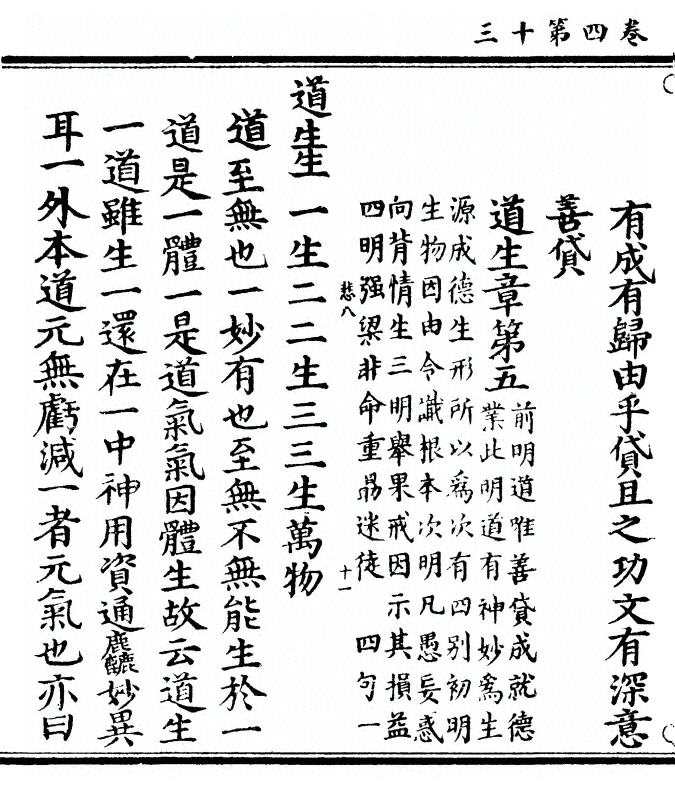 卷四第十三
有成有歸由乎貸且之功文有深意
善貸
道生章第五
前明道唯善貸成就德
業此明道有神妙爲生
源成德生形所以爲次有四别初明
生物因由令識根本次明凡愚妄惑
向背情生三明舉果戒因示其損益
四明强梁非命重勗迷徒 四句一
悲八 十一
道生生一生二二生三三生萬物
道至無也一妙有也至無不無能生於一
道是一體一是道氣氣因體生故云道生
一道雖生一還在一中神用資通麤妙異
耳一外本道元無虧減一者元氣也亦曰